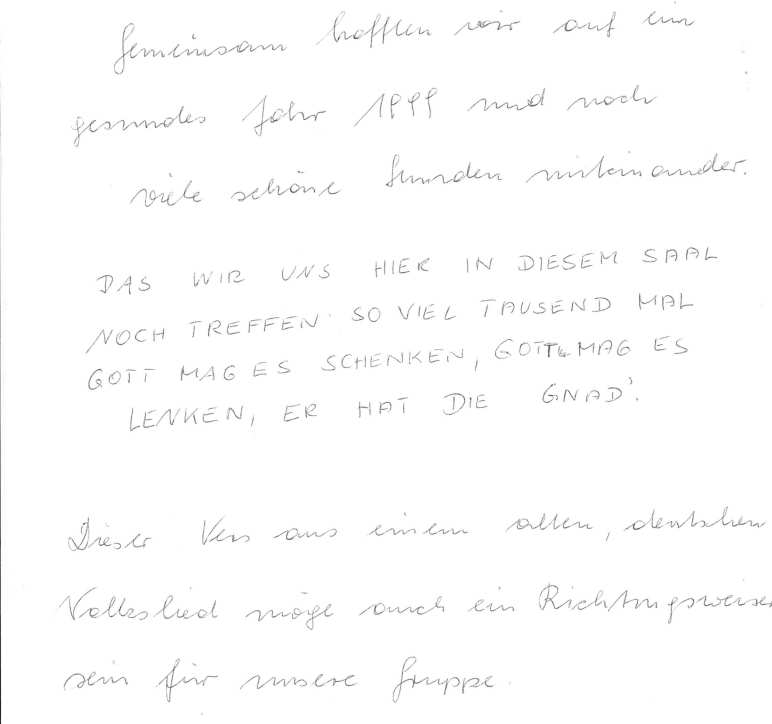 Gemeinsam hofften wir auf ein
gesundes Jahr 1999 und noch
viele schöne Stunden miteinander.
DAS WIR UNS HIER IN DIESEM SAAL
NOCH TREFFEN SO VIEL TAUSEND MAL
GOTT MAG ES SCHENKEN, GOTT MAG ES
LENKEN, ER HAT DIE GNAD'.
Dieser Vers aus einem alten, deutschen
Volkslied möge auch ein Richtungsweiser
sein für unsere Gruppe.